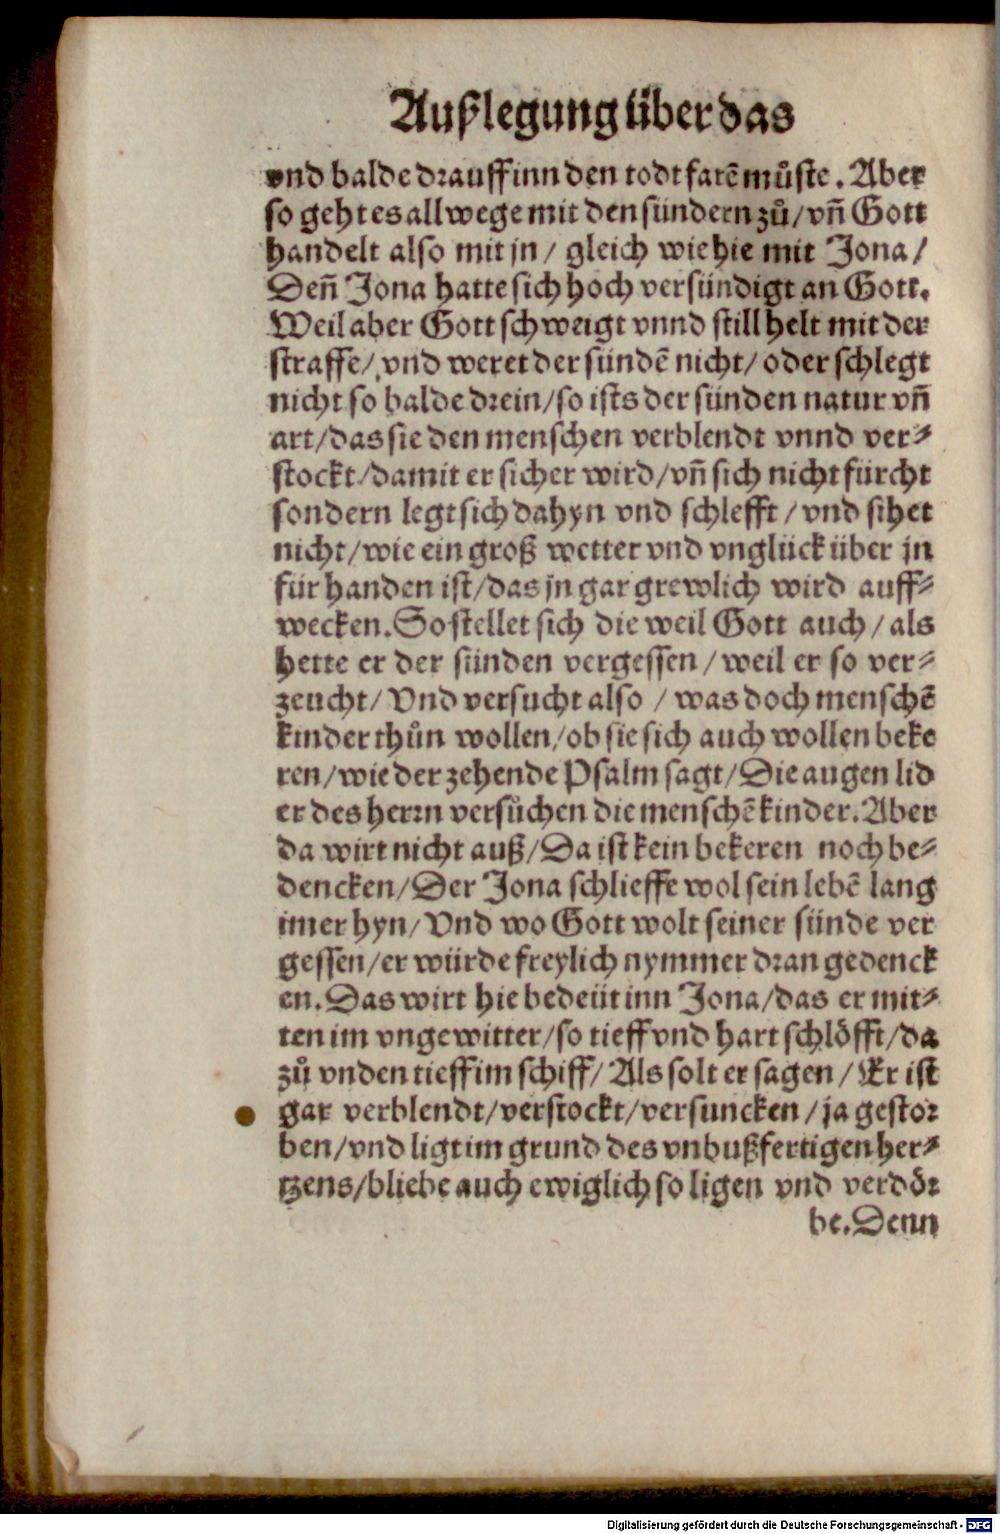 Außlegung über das
vnd balde drauff inn den todt farē můste. Aber
so geht es allwege mit den sündern zů/ vñ Gott
handelt also mit jn/ gleich wie hie mit Jona/
Deñ Jona hatte sich hoch versündigt an Gott.
Weil aber Gott schweigt vnnd still helt mit der
straffe/ vnd weret der sündē nicht/ oder schlegt
nicht so balde drein/ so ists der sünden natur vñ
art/ das sie den menschen verblendt vnnd ver⸗
stockt/ damit er sicher wird/ vñ sich nicht fürcht
sondern legt sich dahyn vnd schlefft/ vnd sihet
nicht/ wie ein groß wetter vnd vnglück über jn
für handen ist/ das jn gar grewlich wird auff⸗
wecken. So stellet sich die weil Gott auch/ als
hette er der sünden vergessen/ weil er so ver⸗
zeucht/ Vnd versucht also/ was doch menschē
kinder thůn wollen/ ob sie sich auch wollen beke
ren/ wie der zehende Psalm sagt/ Die augen lid
er des herrn versůchen die menschēkinder. Aber
da wirt nicht auß/ Da ist kein bekeren noch be⸗
dencken/ Der Jona schlieffe wol sein lebē lang
imer hyn/ Vnd wo Gott wolt seiner sünde ver
gessen/ er würde freylich nymmer dran gedenck
en. Das wirt hie bedeüt inn Jona/ das er mit⸗
ten im vngewitter/ so tieff vnd hart schlöfft/ da
zů vnden tieff im schiff/ Als solt er sagen/ Er ist
gar verblendt/ verstockt/ versuncken/ ja gestor
ben/ vnd ligt im grund des vnbußfertigen her⸗
tzens/ bliebe auch ewiglich so ligen vnd verdör
be. Denn
Digitalisierung gefördert durch die Deutsche Forschungsgemeinschaft - DFG